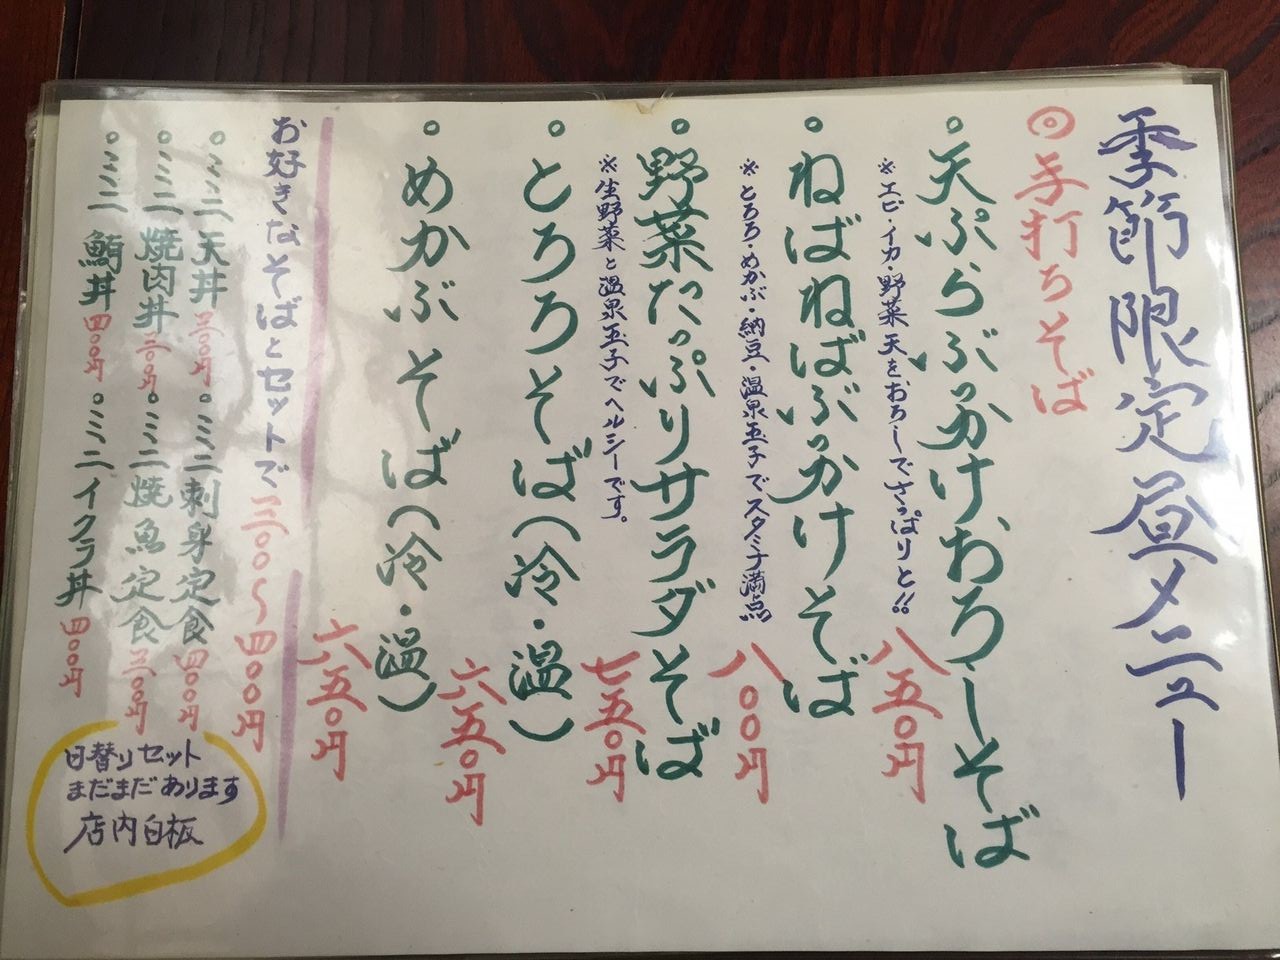 季節限定昼メニュー
◎手打ちそば
。天ぷらぶっかけ、おろしそば
※エビ・イカ・野菜天をおろしでさっぱりと!!
八五〇円
。ねばねばぶっかけそば
※とろろ・めかぶ・納豆・温泉玉子でスタミナ満点
八〇〇円
。野菜たっぷりサラダそば
※生野菜と温泉玉子でヘルシーです。
七五〇円
。とろろそば(冷・温)
六五〇円
。めかぶそば(冷・温)
六五〇円
お好きなそばとセットで三〇〇〜四〇〇円
。ミニ天丼三〇〇円。ミニ刺身定食四〇〇円
。ミニ焼肉丼三〇〇円。ミニ焼魚定食三〇〇円
。ミニ鮪丼四〇〇円。ミニイクラ丼四〇〇円
日替りセット
まだまだあります
店内白板